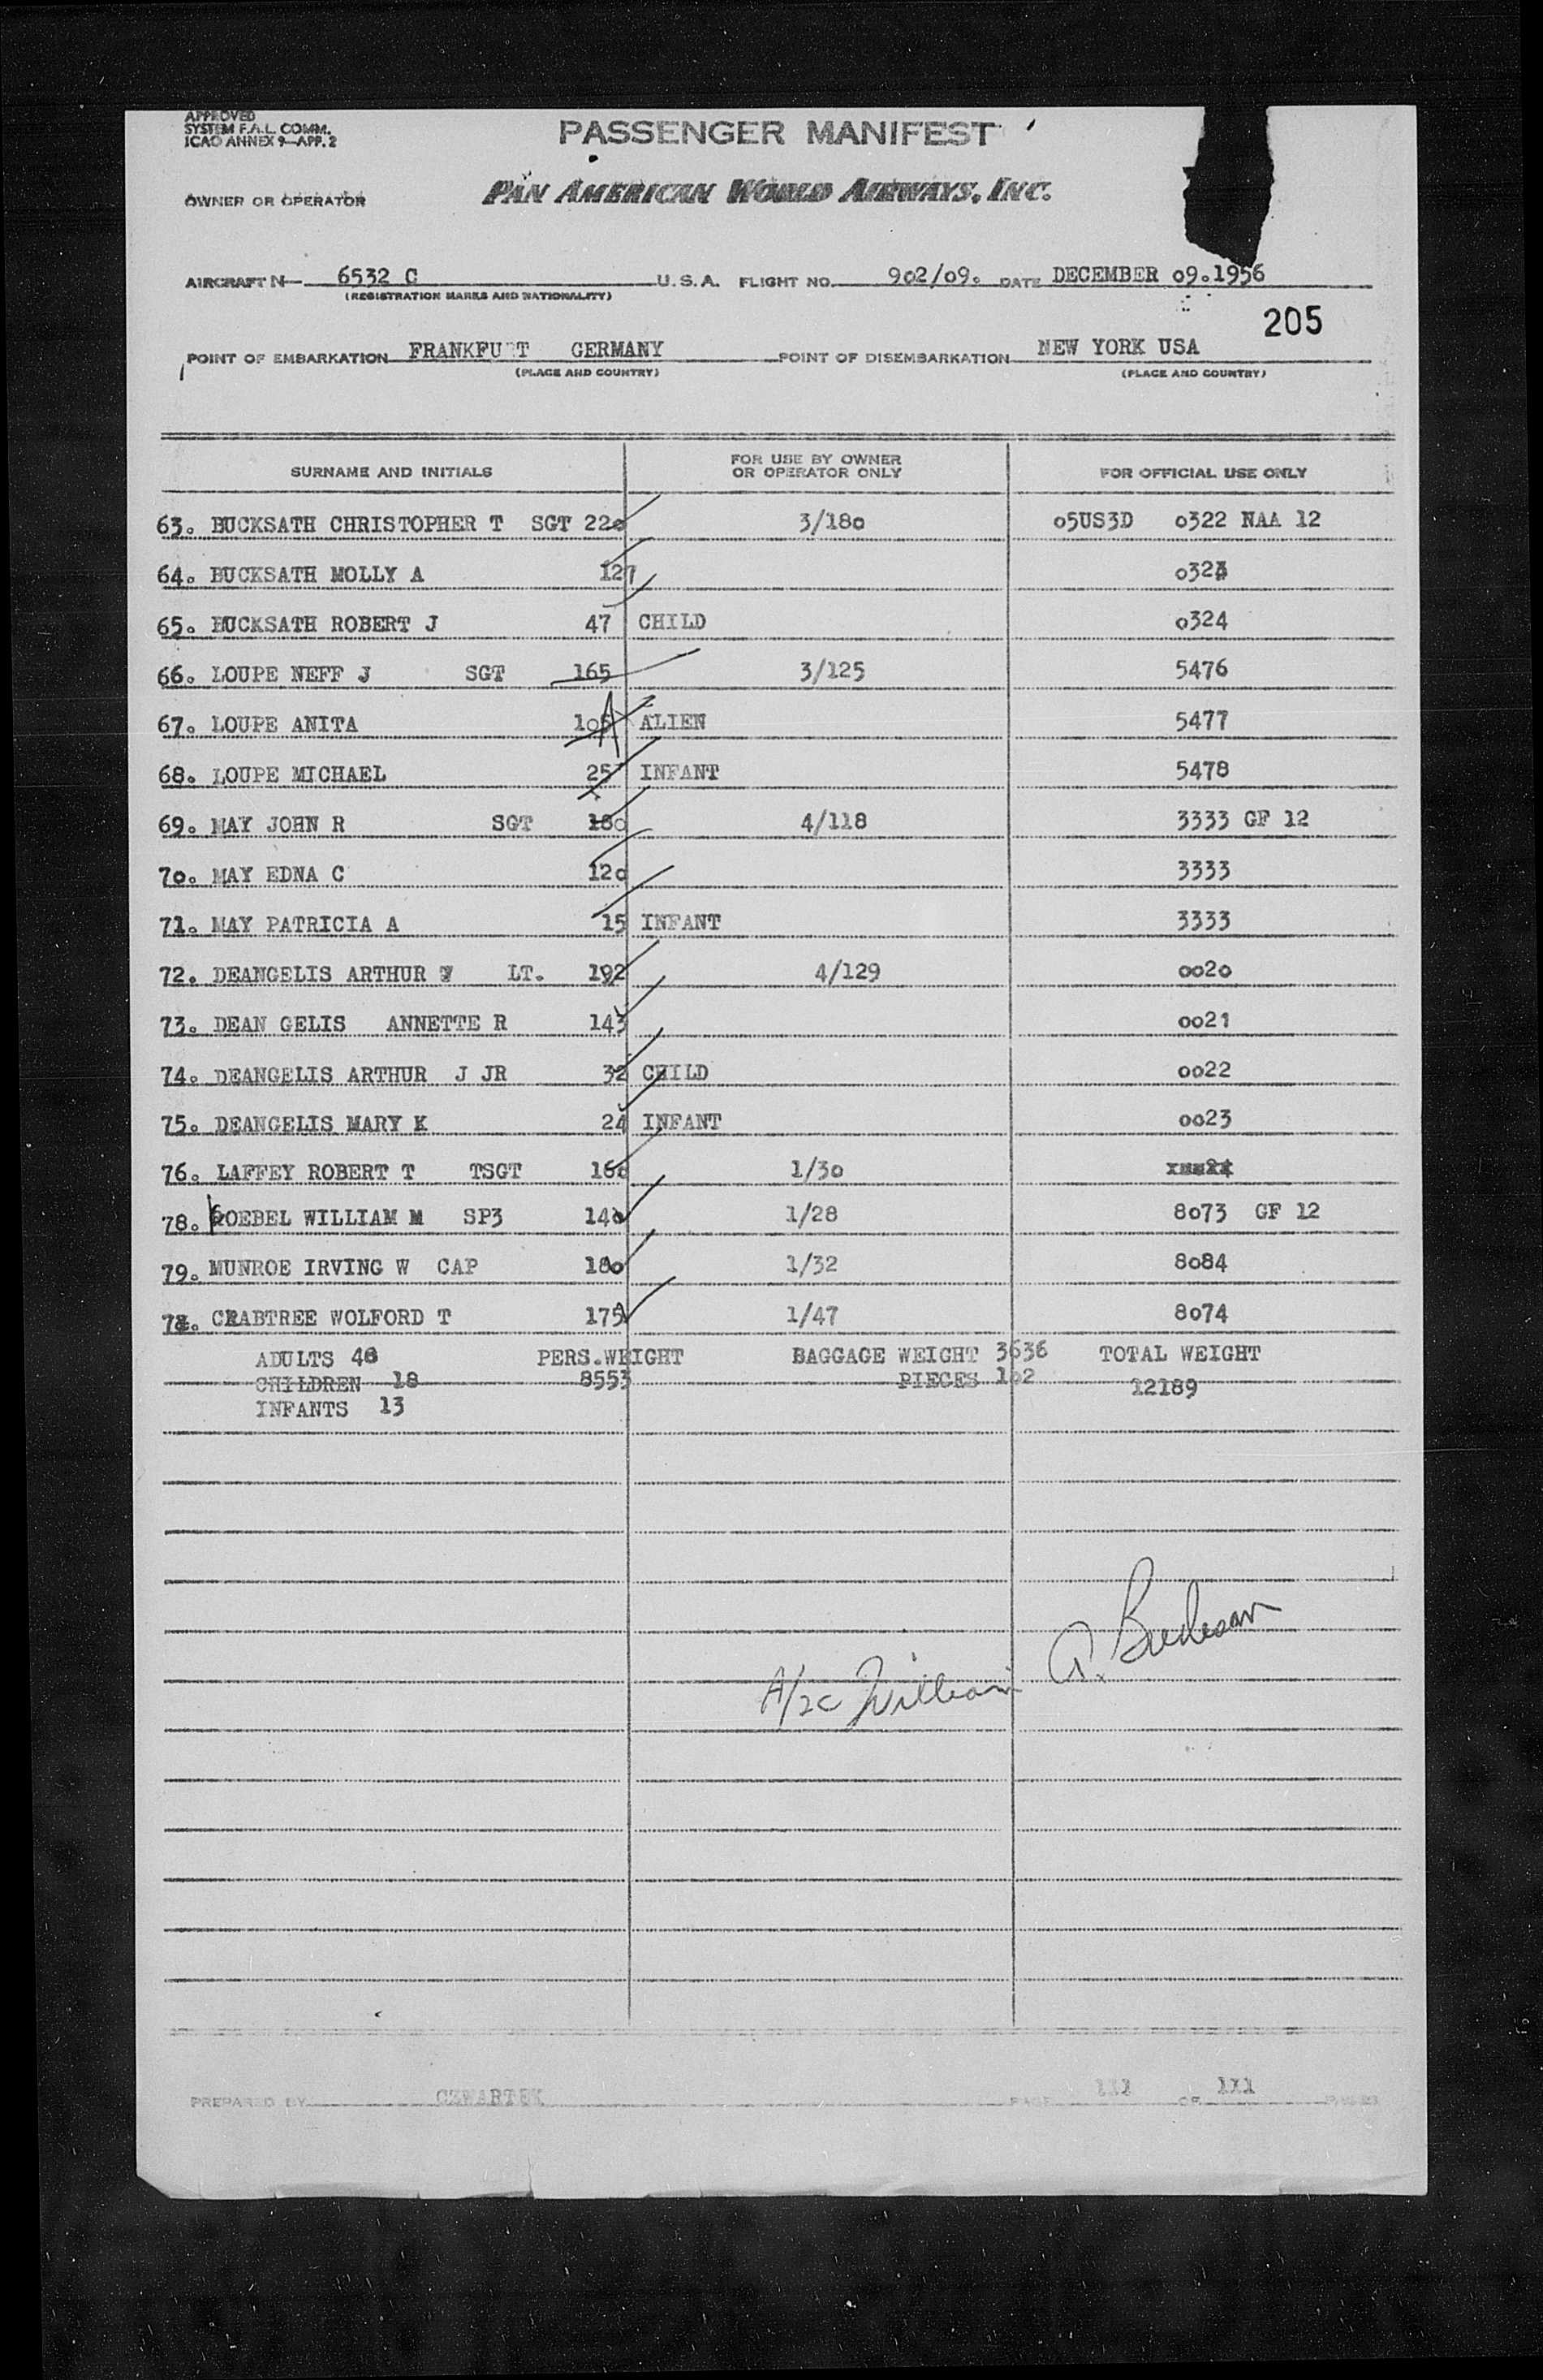 APPROVED
SYSTEM F.A.L. COMM.
ICAO ANNEX 9—APP. 2
PASSENGER MANIFEST
OWNER OR OPERATOR PAN AMERICAN WORLD AIRWAYS, INC.
AIRCRAFT N— 6532 C U.S.A. FLIGHT NO. 902/09. DATE DECEMBER 09.1956
(REGISTRATION MARKS AND NATIONALITY)
205
POINT OF EMBARKATION FRANKFU T GERMANY POINT OF DISEMBARKATION NEW YORK USA
(PLACE AND COUNTRY) (PLACE AND COUNTRY)
SURNAME AND INITIALS FOR USE BY OWNER OR OPERATOR ONLY FOR OFFICIAL USE ONLY
63. BUCKSATH CHRISTOPHER T SGT 220 3/180 05US3D 0322 NAA 12
64. BUCKSATH MOLLY A 127 0323
65. BUCKSATH ROBERT J 47 CHILD 0324
66. LOUPE NEFF J SGT 165 3/125 5476
67. LOUPE ANITA 105 A ALIEN 5477
68. LOUPE MICHAEL 25 INFANT 5478
69. MAY JOHN R SGT 180 4/118 3333 GF 12
70. MAY EDNA C 120 3333
71. MAY PATRICIA A 15 INFANT 3333
72. DEANGELIS ARTHUR LT. 192 4/129 0020
73. DEAN GELIS ANNETTE R 143 0021
74. DEANGELIS ARTHUR J JR 32 CHILD 0022
75. DEANGELIS MARY K 24 INFANT 0023
76. LAFFEY ROBERT T TSGT 160 1/30
78. GOEBEL WILLIAM M SP3 140 1/28 8073 GF 12
79. MUNROE IRVING W CAP 180 1/32 8084
CRABTREE WOLFORD T 175 1/47 8074
ADULTS 48 PERS.WEIGHT BAGGAGE WEIGHT 3636 TOTAL WEIGHT
CHILDREN 18 8553 PIECES 102 12189
INFANTS 13
A/2C William
PREPARED BY CZWARTEK PAGE 111 OF 111 PAGES